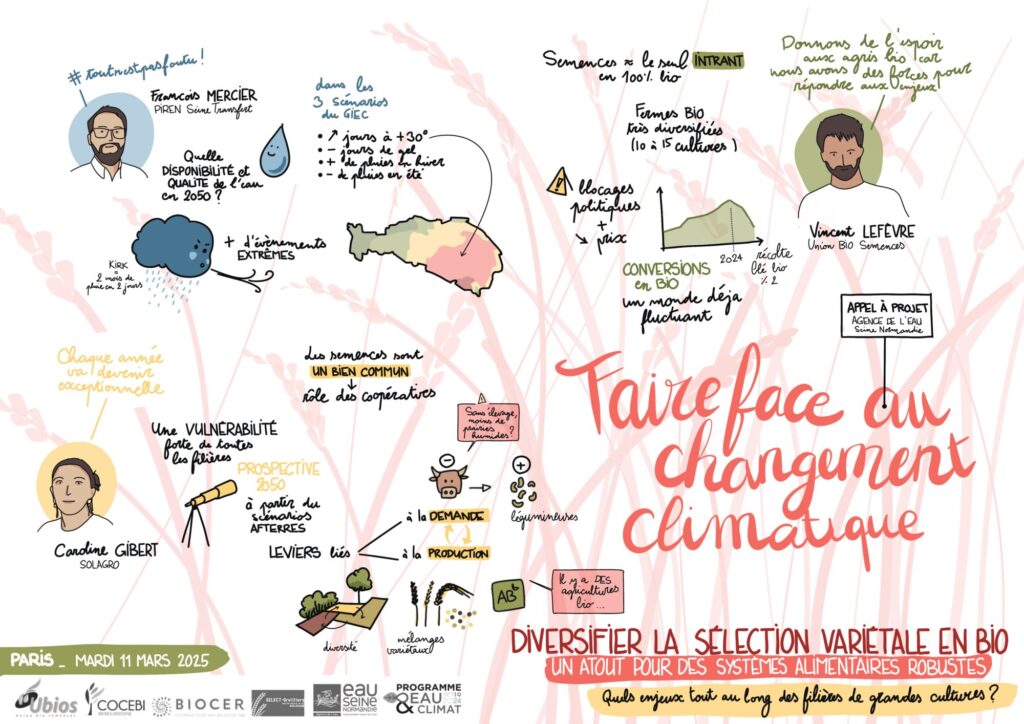 #toutnestpasfoutu!
François MERCIER
PIREN Seine Transfert
Quelle
DISPONIBILITÉ et
QUALITÉ de l'eau
en 2050 ?
dans les
3 scénarios
du GIEC
• ↗ jours à +30°
• - jours de gel
• + de pluies en hiver
• - de pluies en été
+ d'évènements
EXTRÊMES
KIRK
=
2 mois de
pluie en 2 jours
Semences ≈ le seul INTRANT
en 100% bio
Fermes BIO
très diversifiées
(10 à 15 cultures)
blocages
politiques
+
↘ prix
2024
récolte
blé bio
% 2
CONVERSIONS
en BIO
un monde déjà
fluctuant
Donnons de l'espoir
aux agris bio car
nous avons des forces pour
répondre aux enjeux
Vincent LEFÈVRE
Union BIO Semences
APPEL À PROJET
AGENCE DE L'EAU
Seine Normandie
Chaque année
va devenir
exceptionnelle
Caroline GIBERT
SOLAGRO
Une VULNÉRABILITÉ
forte de toutes
les filières
PROSPECTIVE
2050
à partir du
scénarios
AFTERRES
Les semences sont
UN BIEN COMMUN
↓
rôle des coopératives
Sans élevage,
moins de
prairies
humides ?
légumineuses
LEVIERS liés
à la DEMANDE
à la PRODUCTION
diversité
mélanges
variétaux
ABb
Il y a DES
agricultures
bio...
Faire face au
changement
climatique
DIVERSIFIER LA SÉLECTION VARIÉTALE EN BIO
UN ATOUT POUR DES SYSTÈMES ALIMENTAIRES ROBUSTES
Quels enjeux tout au long des filières de grandes cultures ?
PARIS _ MARDI 11 MARS 2025
Ubios
UNION BIO SEMENCES
COCEBI
BIOCER
eau
seine
NORMANDIE
PROGRAMME
EAU
&CLIMAT